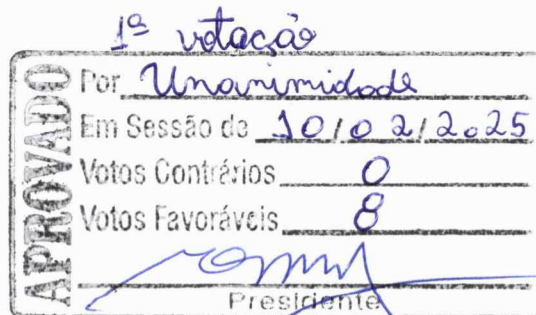 1ª votação
APROVADO
Por Unanimidade
Em Sessão de 10/02/2025
Votos Contrários 0
Votos Favoráveis 8
Presidente